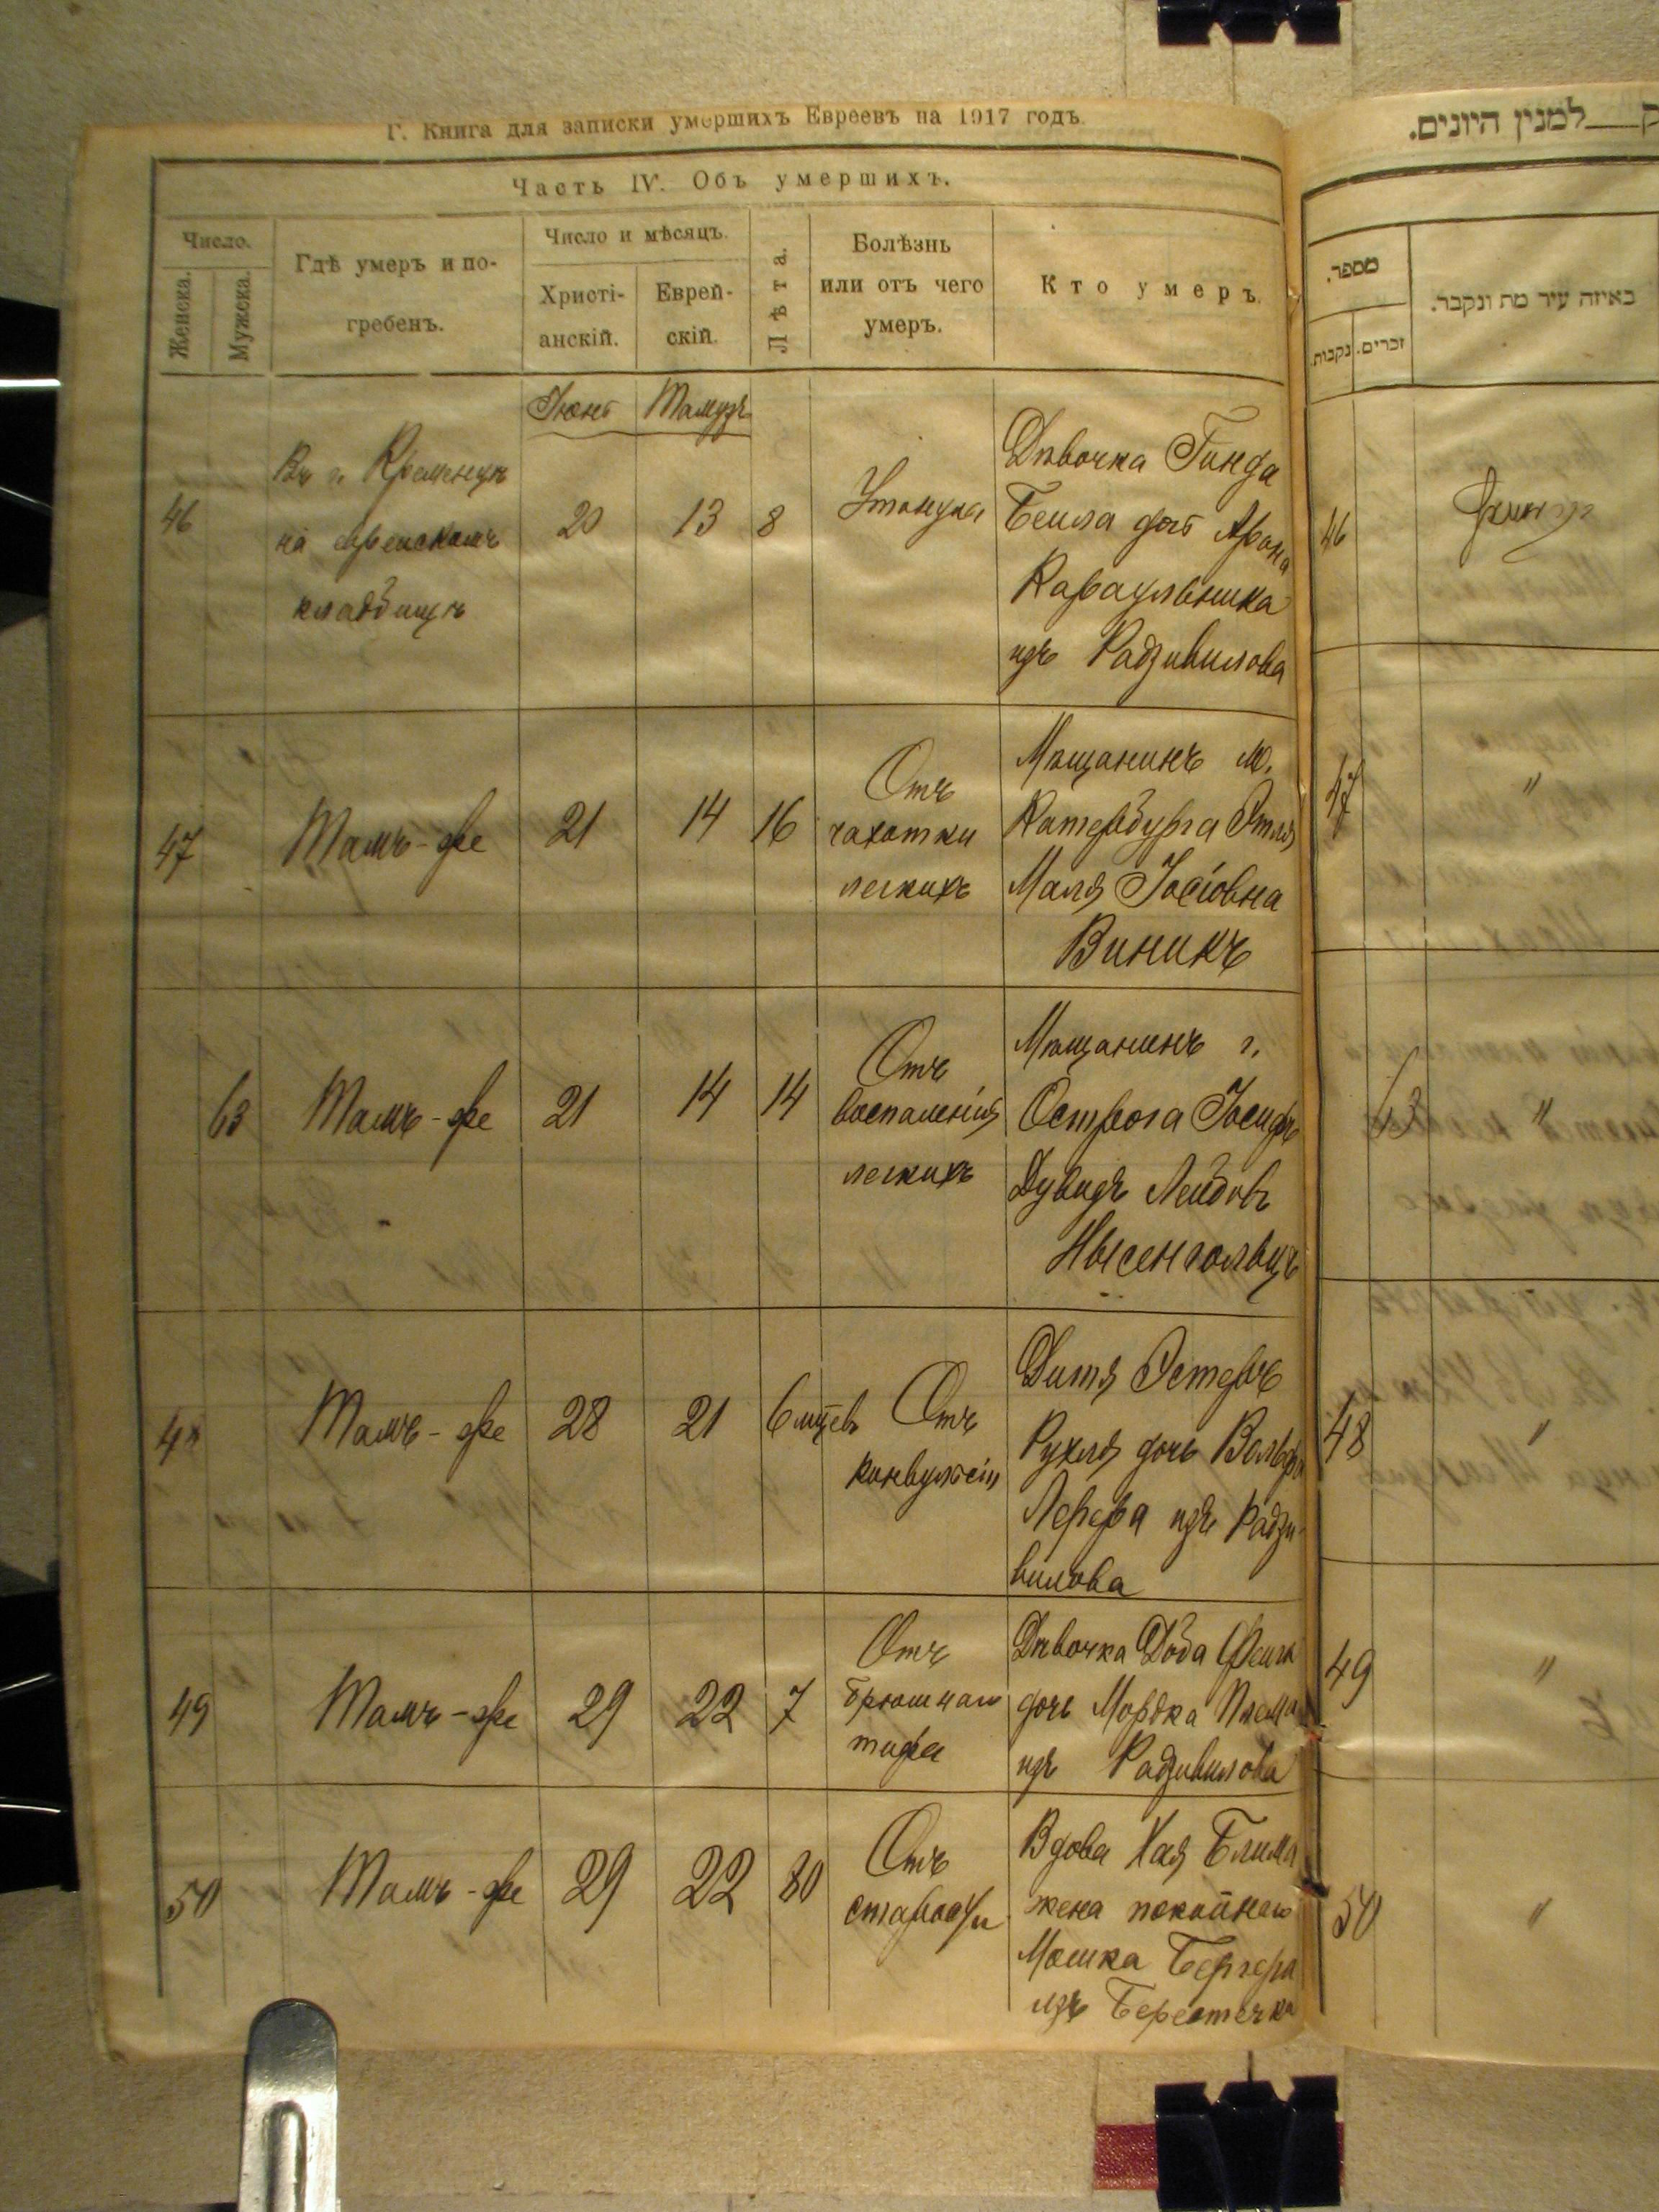 Г. Книга для записки умершихъ Евреевъ на 1917 годъ.
Часть IV. Объ умершихъ.
Число.
Женска.
Мужеска.
Гдѣ умеръ и по-
гребенъ.
Число и мѣсяцъ.
Христі-
анскій.
Еврей-
скій.
Лѣта.
Болѣзнь
или отъ чего
умеръ.
Кто умеръ.
Іюнь Тамузъ
46
Въ г. Кременцѣ
на еврейскомъ
кладбищѣ
20 13 8
Утонула
Дѣвочка Гинда
Бейла дочь Арона
Караульника
изъ Радзивилова
47 Тамъ-же 21 14 16
Отъ
чахотки
легкихъ
Мѣщанинъ м.
Катербурга Этля
Маля Іосіовна
Виникъ
63 Тамъ-же 21 14 14
Отъ
воспаленія
легкихъ
Мѣщанинъ г.
Острога Іосифъ
Дувидъ Лейбовъ
Нысенгольцъ
48 Тамъ-же 28 21 6 мцевъ
Отъ
конвульсіи
Дитя Эстеръ
Рухля дочь Вольфа
Лерера изъ Радзи-
вилова
49 Тамъ-же 29 22 7
Отъ
брюшнаго
тифа
Дѣвочка Доба Фейга
дочь Мордка
изъ Радзивилова
50 Тамъ-же 29 22 80
Отъ
старости
Вдова Хая Блима
жена покойнаго
Мошка Бергера
изъ Берестечка
למנין היונים.
מספר.
נקבות.
זכרים.
באיזה עיר מת ונקבר.
46
47 "
63 "
48 "
49 "
50 "